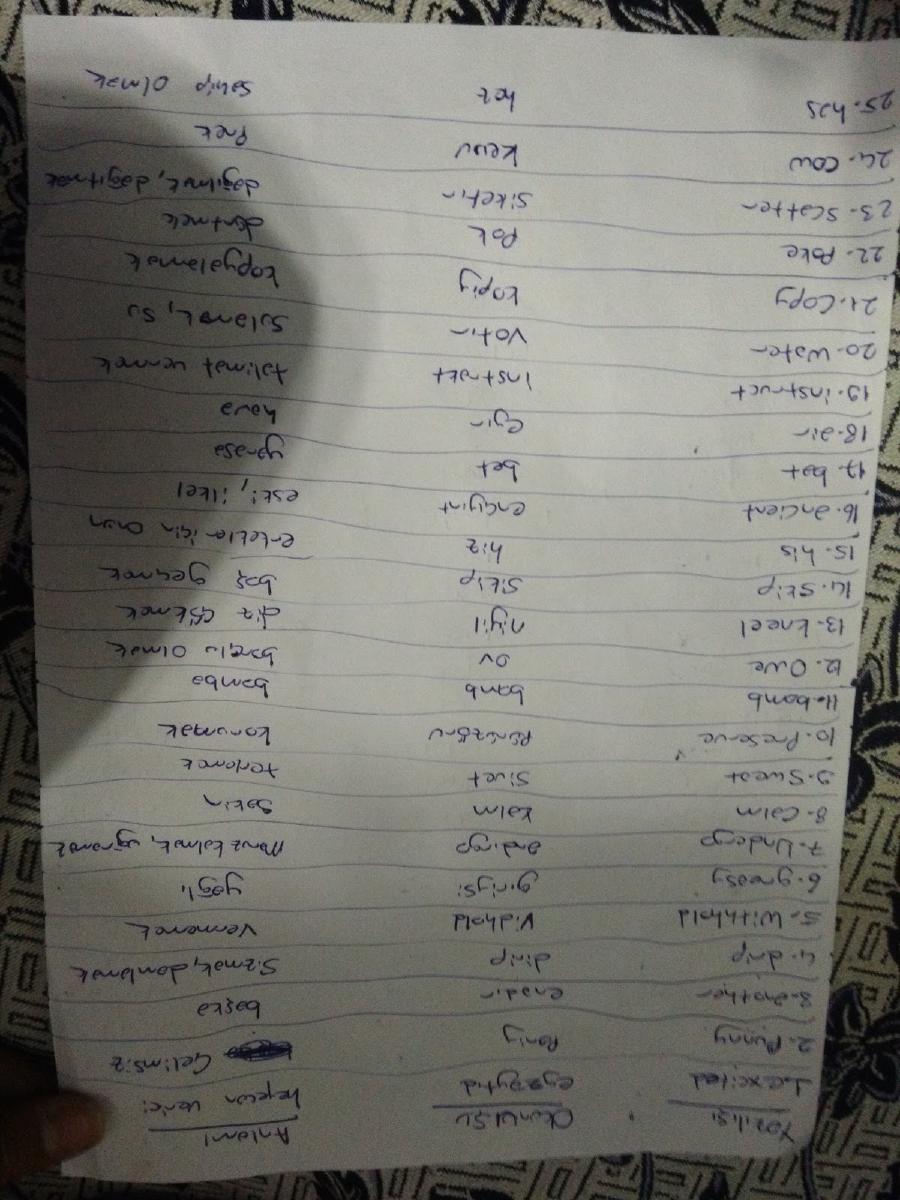 Yazılışı Okunuşu Anlamı
1. excited heyecan verici
2. Punny Poniy Gelimsiz
3. another enadır başka
4. drip dirip Sızmak, damlamak
5. Withhold Vidhold Vermemek
6. greasy giriysi yağlı
7. Undergo andırgo Maruz kalmak, uğramak
8. Calm kalm Sakin
9. Sweat Sivet terlemek
10. Preserve korumak
11. bomb bamb bomba
12. Owe ov borçlu olmak
13. kneel niyil diz çökmek
14. Skip Sikip boş geçmek
15. his hiz erkekler için onun
16. ancient encıyınt eski, ilkel
17. bat bet yarasa
18. air eyır hava
19. instruct Instrakt talimat vermek
20. Water Votır Sulamak, Su
21. Copy kopiy kopyalamak
22. Poke Pok dürtmek
23. Scatter Siketır dağılmak, dağıtmak
24. Cow kew İnek
25. has hez sahip olmak